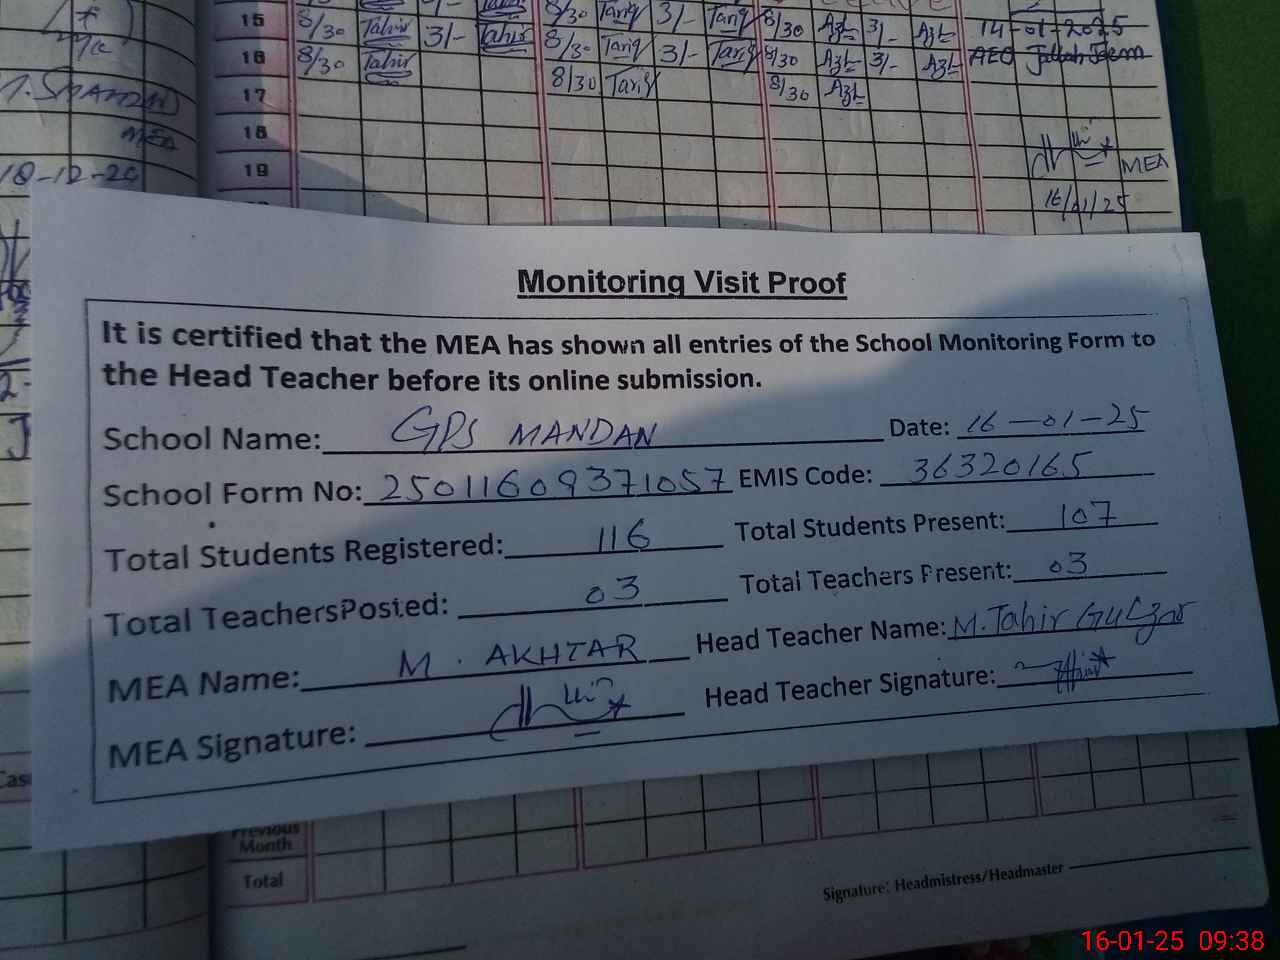 15 8/30 Tahir 3/- Tahir 8/30 Tariq 3/- Tariq 8/30 3/- 14-01-2025
16 8/30 Tahir 8/30 Tariq 3/- Tariq 8/30 3/- AEO
17 8/30 Tariq 8/30
18
19 MEA
16/01/25
MEA
18-12-24
Monitoring Visit Proof
It is certified that the MEA has shown all entries of the School Monitoring Form to
the Head Teacher before its online submission.
School Name: GPS MANDAN Date: 16-01-25
School Form No: 25011609371057 EMIS Code: 36320165
Total Students Registered: 116 Total Students Present: 107
Total TeachersPosted: 03 Total Teachers Present: 03
MEA Name: M. AKHTAR Head Teacher Name: M. Tahir Gulzar
MEA Signature: Head Teacher Signature:
Previous
Month
Total
Signature: Headmistress/Headmaster
16-01-25 09:38